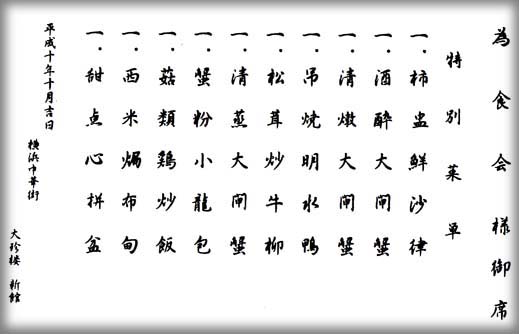 為食会様御席
特別菜単
一．柿盅鮮沙律
一．酒醉大闸蟹
一．清燉大闸蟹
一．吊焼明水鴨
一．松茸炒牛柳
一．清蒸大闸蟹
一．蟹粉小龍包
一．菇類鶏炒飯
一．西米焗布甸
一．甜点心拼盆
平成十年十月吉日
横浜中華街
大珍楼 新館